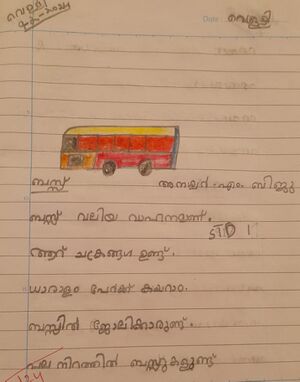 വെള്ളി
Date: വെള്ളി
ബസ്സ് അനശ്വർ എം ബിജു
STD 1
ബസ്സ് വലിയ വാഹനമാണ്.
ആറ് ചക്രങ്ങൾ ഉണ്ട്.
ധാരാളം പേർക്ക് കയറാം.
ബസ്സിൽ ജോലിക്കാരുണ്ട്.
പല നിറത്തിൽ ബസ്സുകളുണ്ട്